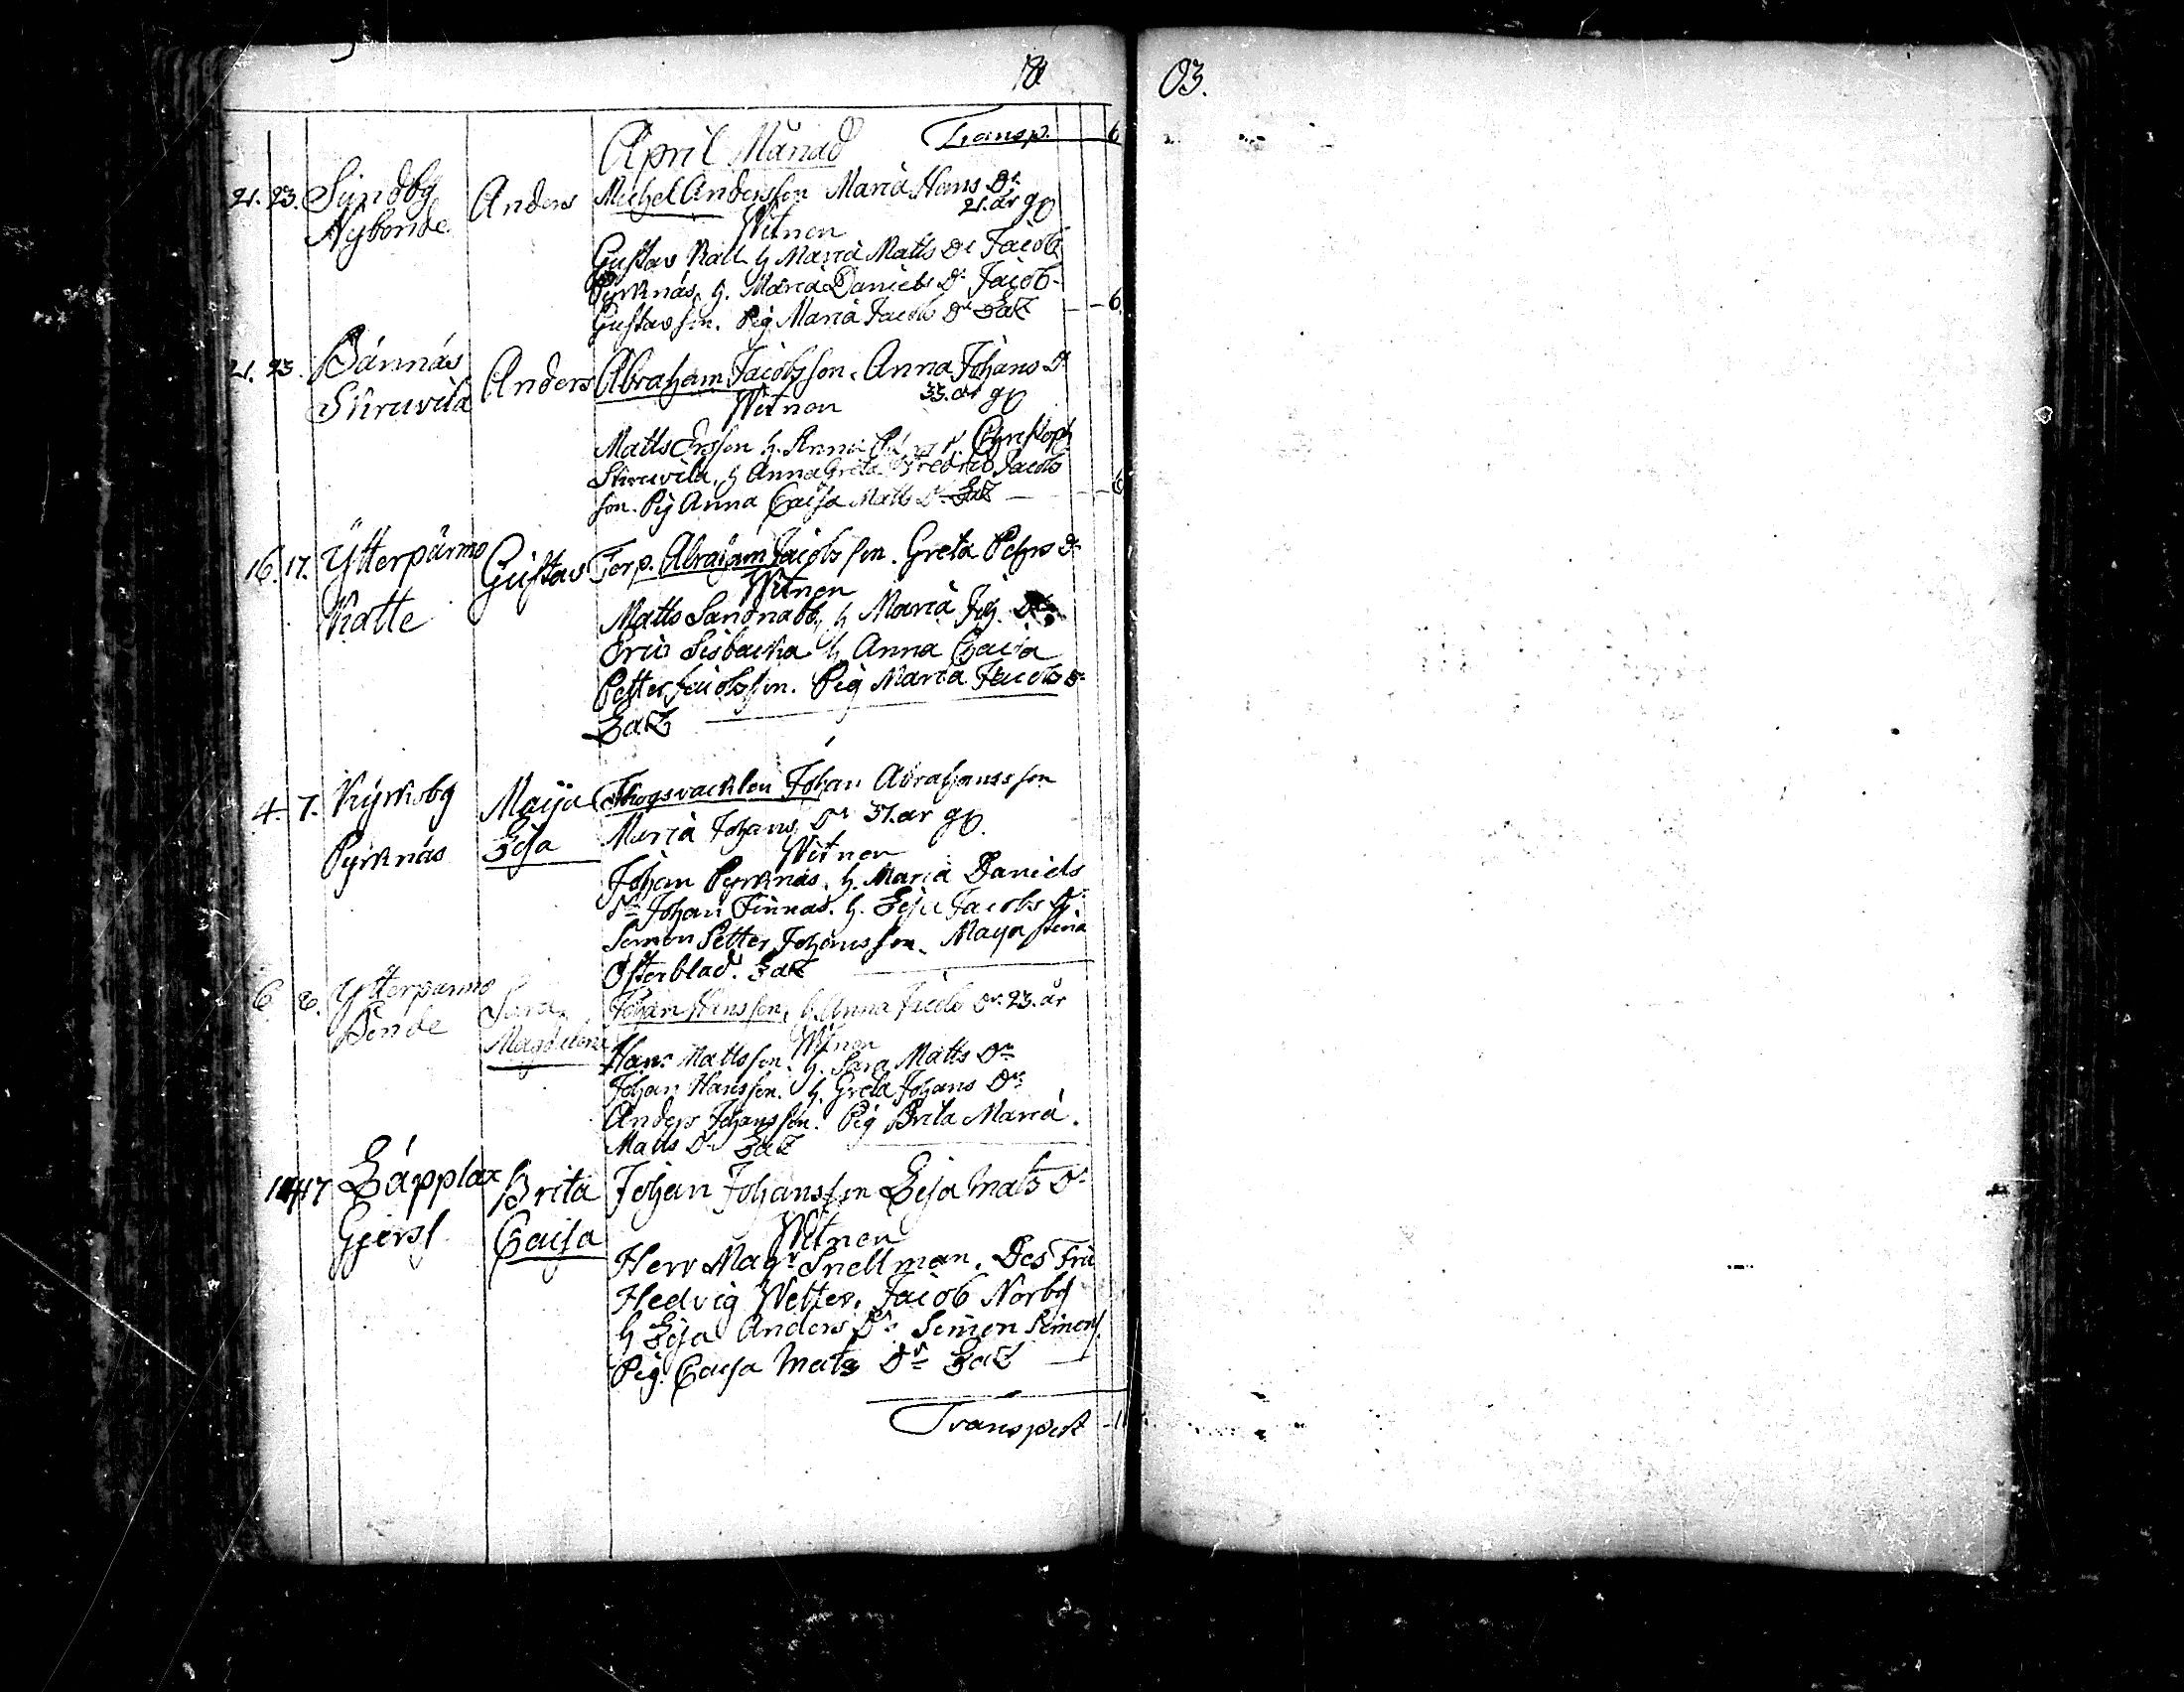 18 03.
April Månad Transp. 6
21. 23. Sundby Anders Michel Andersson Maria Hans Dr
Nybonde 21. år gl
Witnen
Gustaf Katt h Maria Matts Dr Jacob
Pyrknäs, h. Maria Daniels Dr Jacob
Gustafsson. Pig Maria Jacobs Dr 6
21. 23. Bännäs Anders Abraham Jacobsson. Anna Johans Dr
Stiruvila 33. år gl
Witnen
Matts Ersson h. Anna Christoph
Stiruvila, h Anna Greta Fredric Jacobs
son. Pig Anna Caisa Matts Dr 6
16. 17. Ytterpurmo Gustav Torp. Abraham Jacobsson. Greta Pehrs Dr
Katte Witnen
Matts Sandnabb, h Maria Joh. Dr
Eric Lisbacka h Anna Caisa
Petter Jacobsson. Pig Maria Jacobs Dr
4. 7. Kyrkoby Maija Skogsvackten Johan Abrahamsson
Pyrknäs Lisa Maria Johans Dr 37. år gl.
Witnen
Johan Pyrknäs. h. Maria Daniels
Dr Johan Finnäs. h. Lisa Jacobs Dr
Simon Petter Johansson. Maija Stina
Österblad.
6 8. Ytterpurmo Sara Johan Hansson, h. Anna Jacobs Dr 23. år
Bonde Magdalena Witnen
Hans Mattsson. h. Sara Matts Dr
Johan Hansson. h. Greta Johans Dr
Anders Johansson. Pig Brita Maria
Matts Dr
17 Läpplax Brita Johan Johansson Lisa Mats Dr
Gjers Caisa Witnen
Herr Magr Snellman. Des Fru
Hedvig Wetter. Jacob Norby
h Lisa Anders Dr Simon Simons
Pig. Caisa Mats Dr
Transport 11